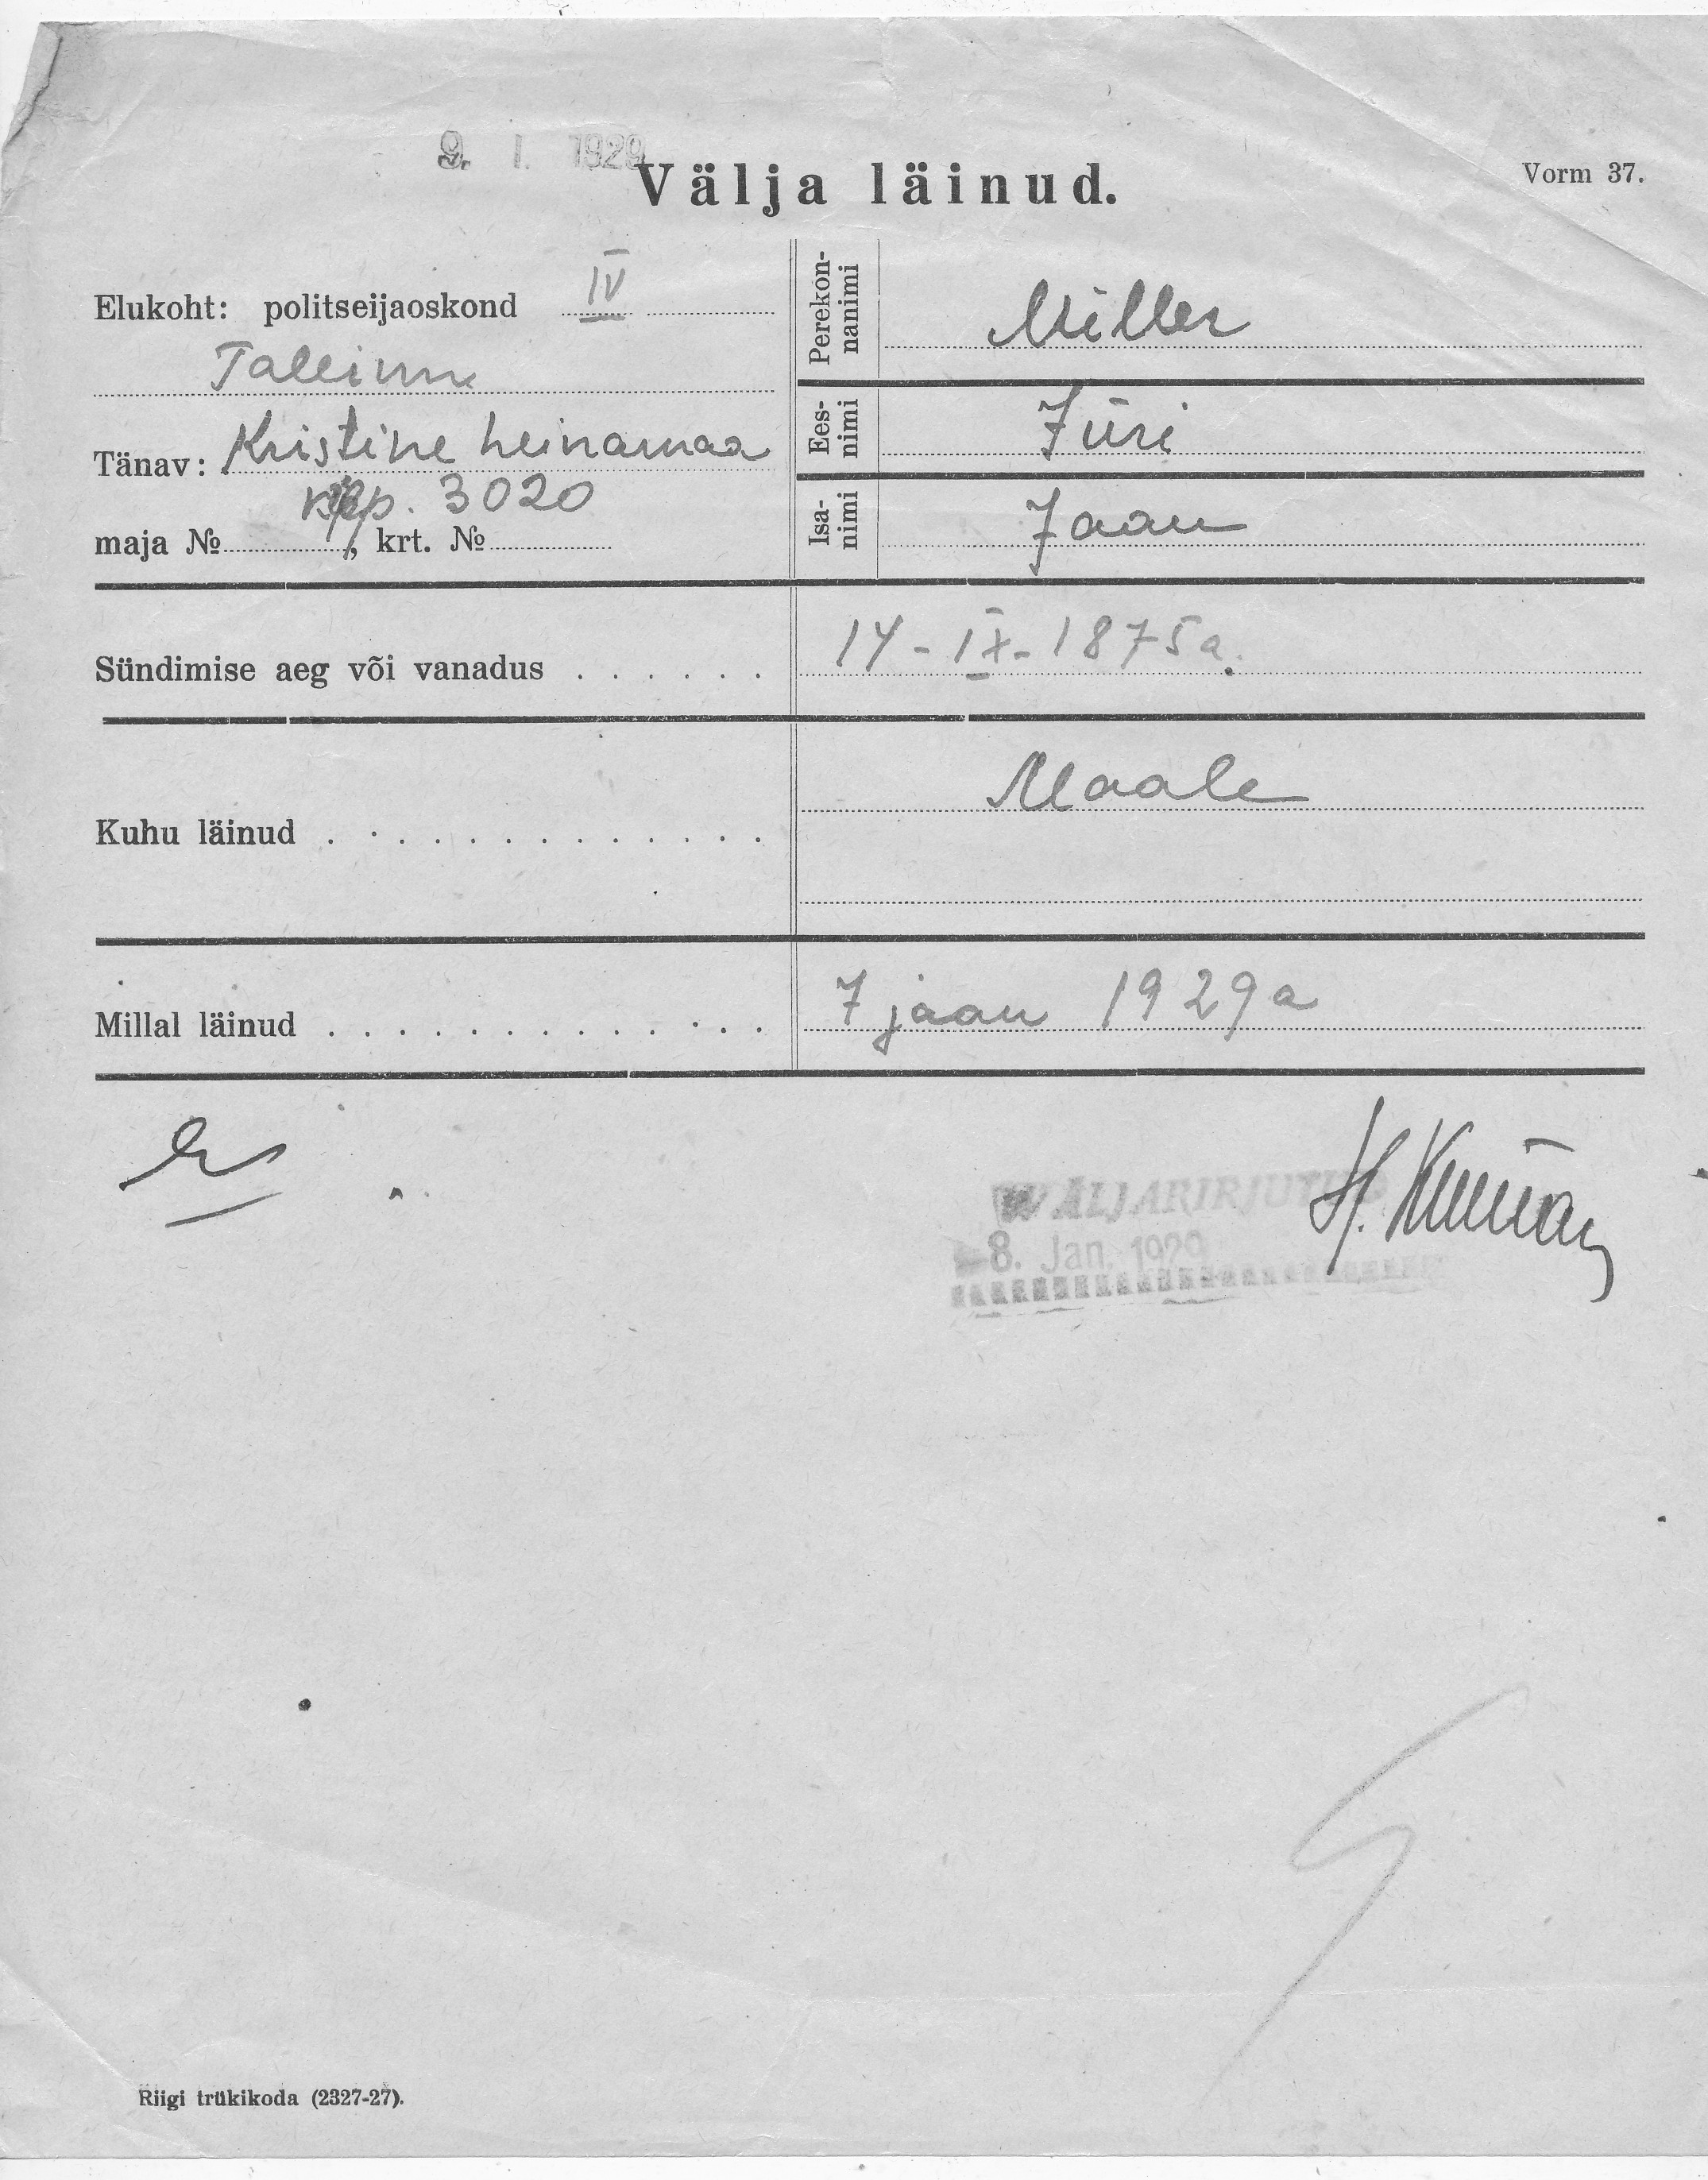 9. I. 1929
Välja läinud.
Vorm 37.
Elukoht: politseijaoskond IV
Tallinn
Tänav: Kristine heinamaa
krp. 3020
maja № , krt. №
Perekonnanimi
Miller
Eesnimi
Jüri
Isanimi
Jaan
Sündimise aeg või vanadus . . . . . .
14-IX-1875a.
Kuhu läinud . . . . . . . . . . . . .
Maale
Millal läinud . . . . . . . . . . . . .
7 jaan 1929a
WÄLJAKIRJUTUD
8. Jan. 1929
H.
Riigi trükikoda (2327-27).